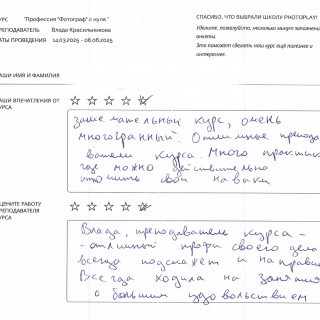 КУРС "Профессия "Фотограф" с нуля"
СПАСИБО, ЧТО ВЫБРАЛИ ШКОЛУ PHOTOPLAY!
РЕПОДАВАТЕЛЬ Влада Красильникова
Уделите, пожалуйста, несколько минут заполнени
анкеты.
АТЫ ПРОВЕДЕНИЯ 14.03.2025 - 06.06.2025
Это поможет сделать наш курс ещё полезнее и
интереснее.
АШИ ИМЯ И ФАМИЛИЯ
АШИ ВПЕЧАТЛЕНИЯ ОТ
УРСА
замечательный курс, очень
многогранный. Отличные препода
ватели курса. Много практик
где можно действительно
отточить свои навыки
ЦЕНИТЕ РАБОТУ
РЕПОДАВАТЕЛЯ
УРСА
Влада, преподаватель курса -
- отличный профи своего дела
всегда подскажет и направи
Всегда ходила на заняти
с большим удовольствием